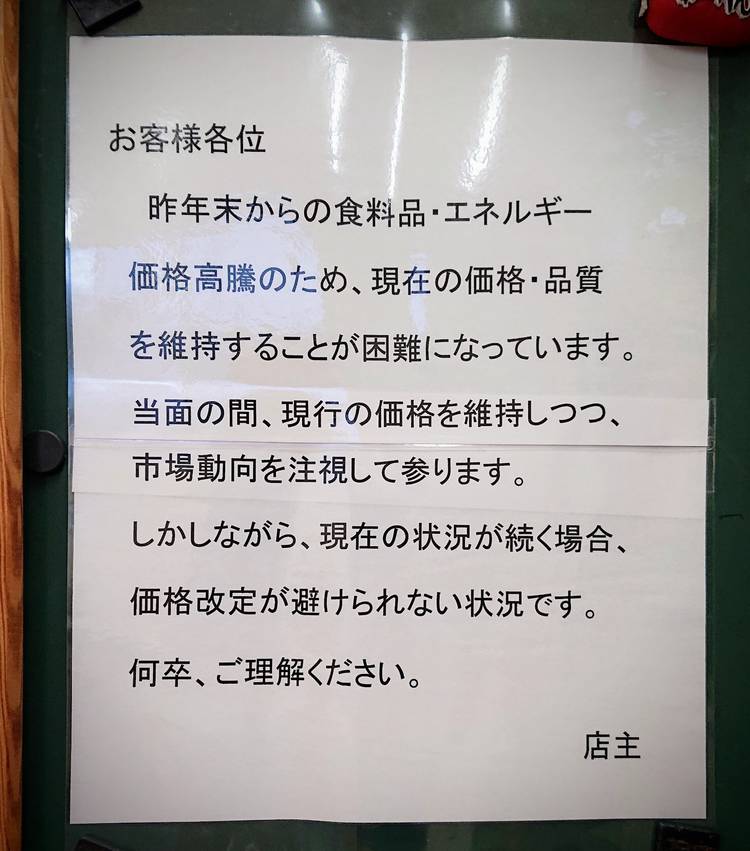 お客様各位
昨年末からの食料品・エネルギー
価格高騰のため、現在の価格・品質
を維持することが困難になっています。
当面の間、現行の価格を維持しつつ、
市場動向を注視して参ります。
しかしながら、現在の状況が続く場合、
価格改定が避けられない状況です。
何卒、ご理解ください。
店主